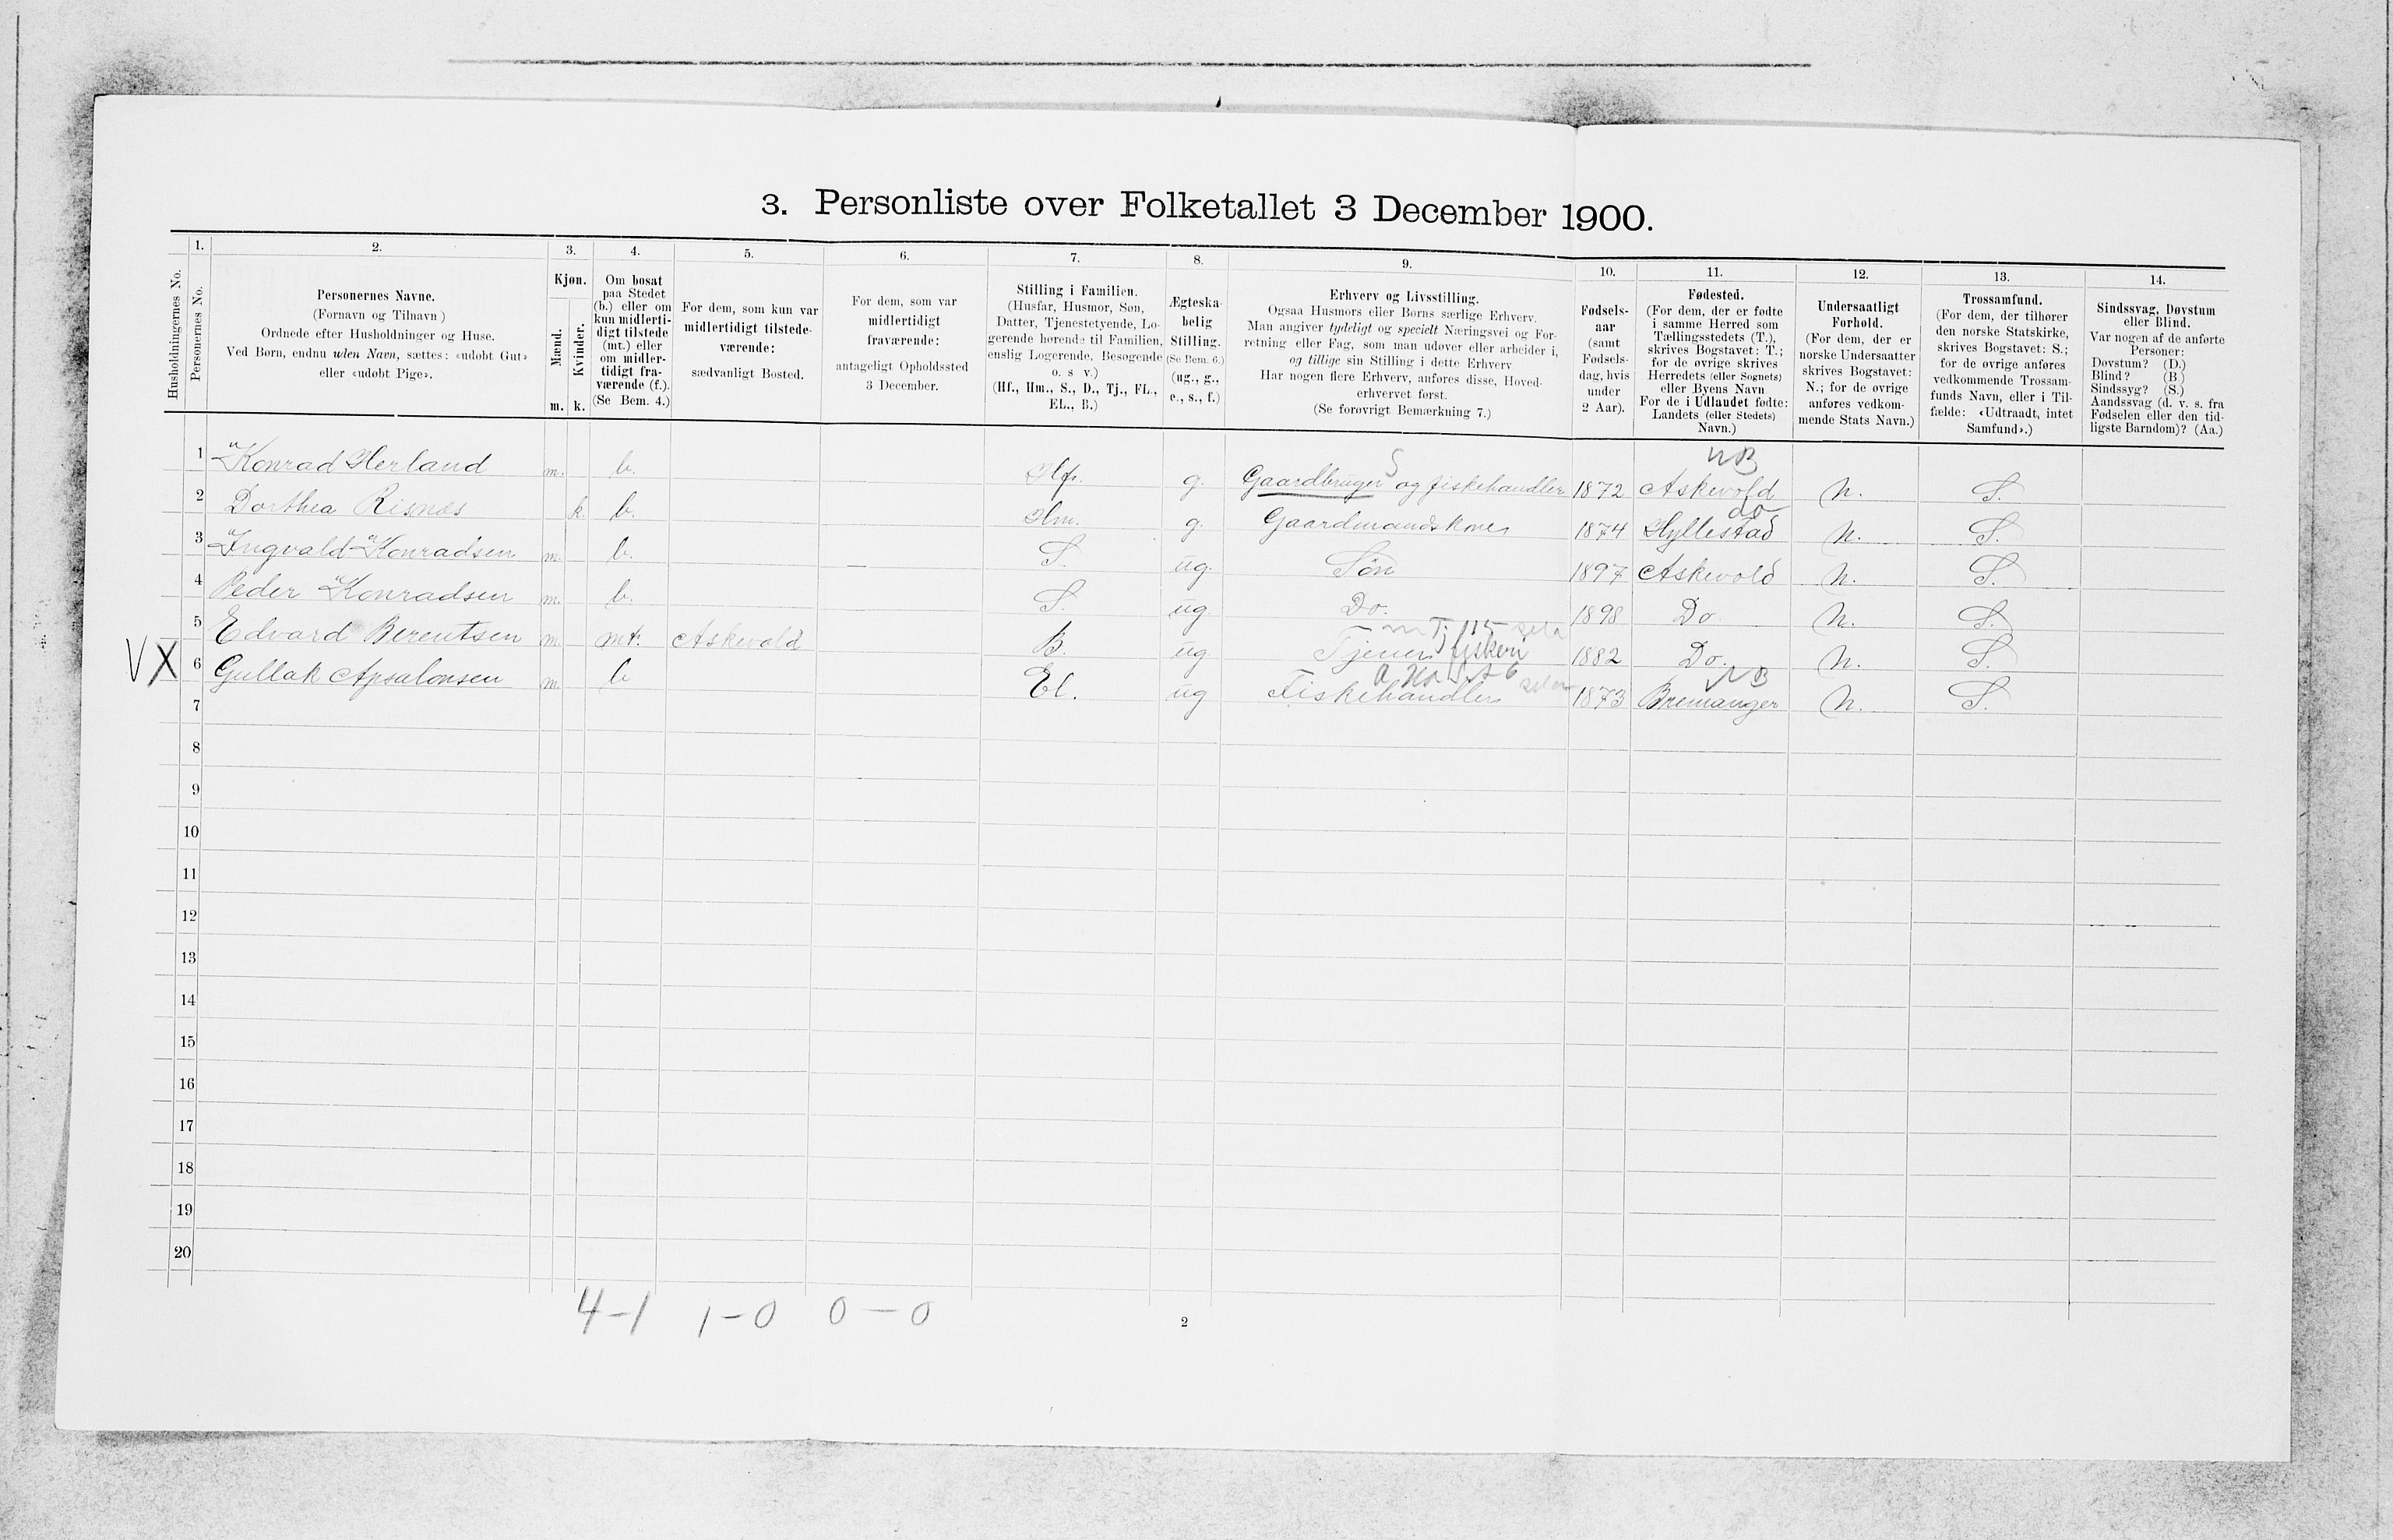 3. Personliste over Folketallet 3 December 1900.
1. 2. 3. 4. 5. 6. 7. 8. 9. 10. 11. 12. 13. 14.
Husholdningernes No.
Personernes No.
Personernes Navne.
(Fornavn og Tilnavn)
Ordnede efter Husholdninger og Huse.
Ved Børn, endnu uden Navn, sættes: «udøbt Gut»
eller «udøbt Pige».
Kjøn.
Mænd.
Kvinder.
m. k.
Om bosat
paa Stedet
(b.) eller om
kun midlerti-
digt tilstede
(mt.) eller
om midler-
tidigt fra-
værende (f.).
(Se Bem. 4.)
For dem, som kun var
midlertidigt tilstede-
værende:
sædvanligt Bosted.
For dem, som var
midlertidigt
fraværende:
antageligt Opholdssted
3 December.
Stilling i Familien.
(Husfar, Husmor, Søn,
Datter, Tjenestetyende, Lo-
gerende hørende til Familien,
enslig Logerende, Besøgende
o. s v.)
(Hf., Hm., S., D., Tj., FL.,
EL., B.)
Ægteska-
belig
Stilling.
(Se Bem. 6.)
(ug., g.,
e., s., f.)
Erhverv og Livsstilling.
Ogsaa Husmors eller Børns særlige Erhverv.
Man angiver tydeligt og specielt Næringsvei og For-
retning eller Fag, som man udøver eller arbeider i,
og tillige sin Stilling i dette Erhverv
Har nogen flere Erhverv, anføres disse, Hoved-
erhvervet først.
(Se forøvrigt Bemærkning 7.)
Fødsels-
aar
(samt
Fødsels-
dag, hvis
under
2 Aar).
Fødested.
(For dem, der er fødte
i samme Herred som
Tællingsstedets (T.),
skrives Bogstavet: T.;
for de øvrige skrives
Herredets (eller Sognets)
eller Byens Navn
For de i Udlandet fødte:
Landets (eller Stedets)
Navn.)
Undersaatligt
Forhold.
(For dem, der er
norske Undersaatter
skrives Bogstavet:
N.; for de øvrige
anføres vedkom-
mende Stats Navn.)
Trossamfund.
(For dem, der tilhører
den norske Statskirke,
skrives Bogstavet: S.;
for de øvrige anføres
vedkommende Trossam-
funds Navn, eller i Til-
fælde: «Udtraadt, intet
Samfund».)
Sindssvag, Døvstum
eller Blind.
Var nogen af de anførte
Personer:
Døvstum? (D.)
Blind? (B.)
Sindssyg? (S.)
Aandssvag (d. v. s. fra
Fødselen eller den tid-
ligste Barndom)? (Aa.)
5 NB
1 Konrad Herland m. b. Hf. g. Gaardbruger og fiskehandler 1872 Askevold N. S.
do
2 Dorthea Risnæs k. b. Hm. g. Gaardmandskone 1874 Hyllestad N. S.
3 Ingvald Konradsen m. b. S. ug. Søn 1897 Askevold N. S.
4 Peder Konradsen m. b. S. ug. Do. 1898 Do. N. S.
5 Edvard Berentsen m. mt. Askevold B. ug. Tjener fiskeri 1882 Do. N. S.
NB
V X 6 Gullak Apsalonsen m. b El. ug Fiskehandler 1873 Bremanger N. S.
7
8
9
10
11
12
13
14
15
16
17
18
19
20
4-1 1-0 0-0
2